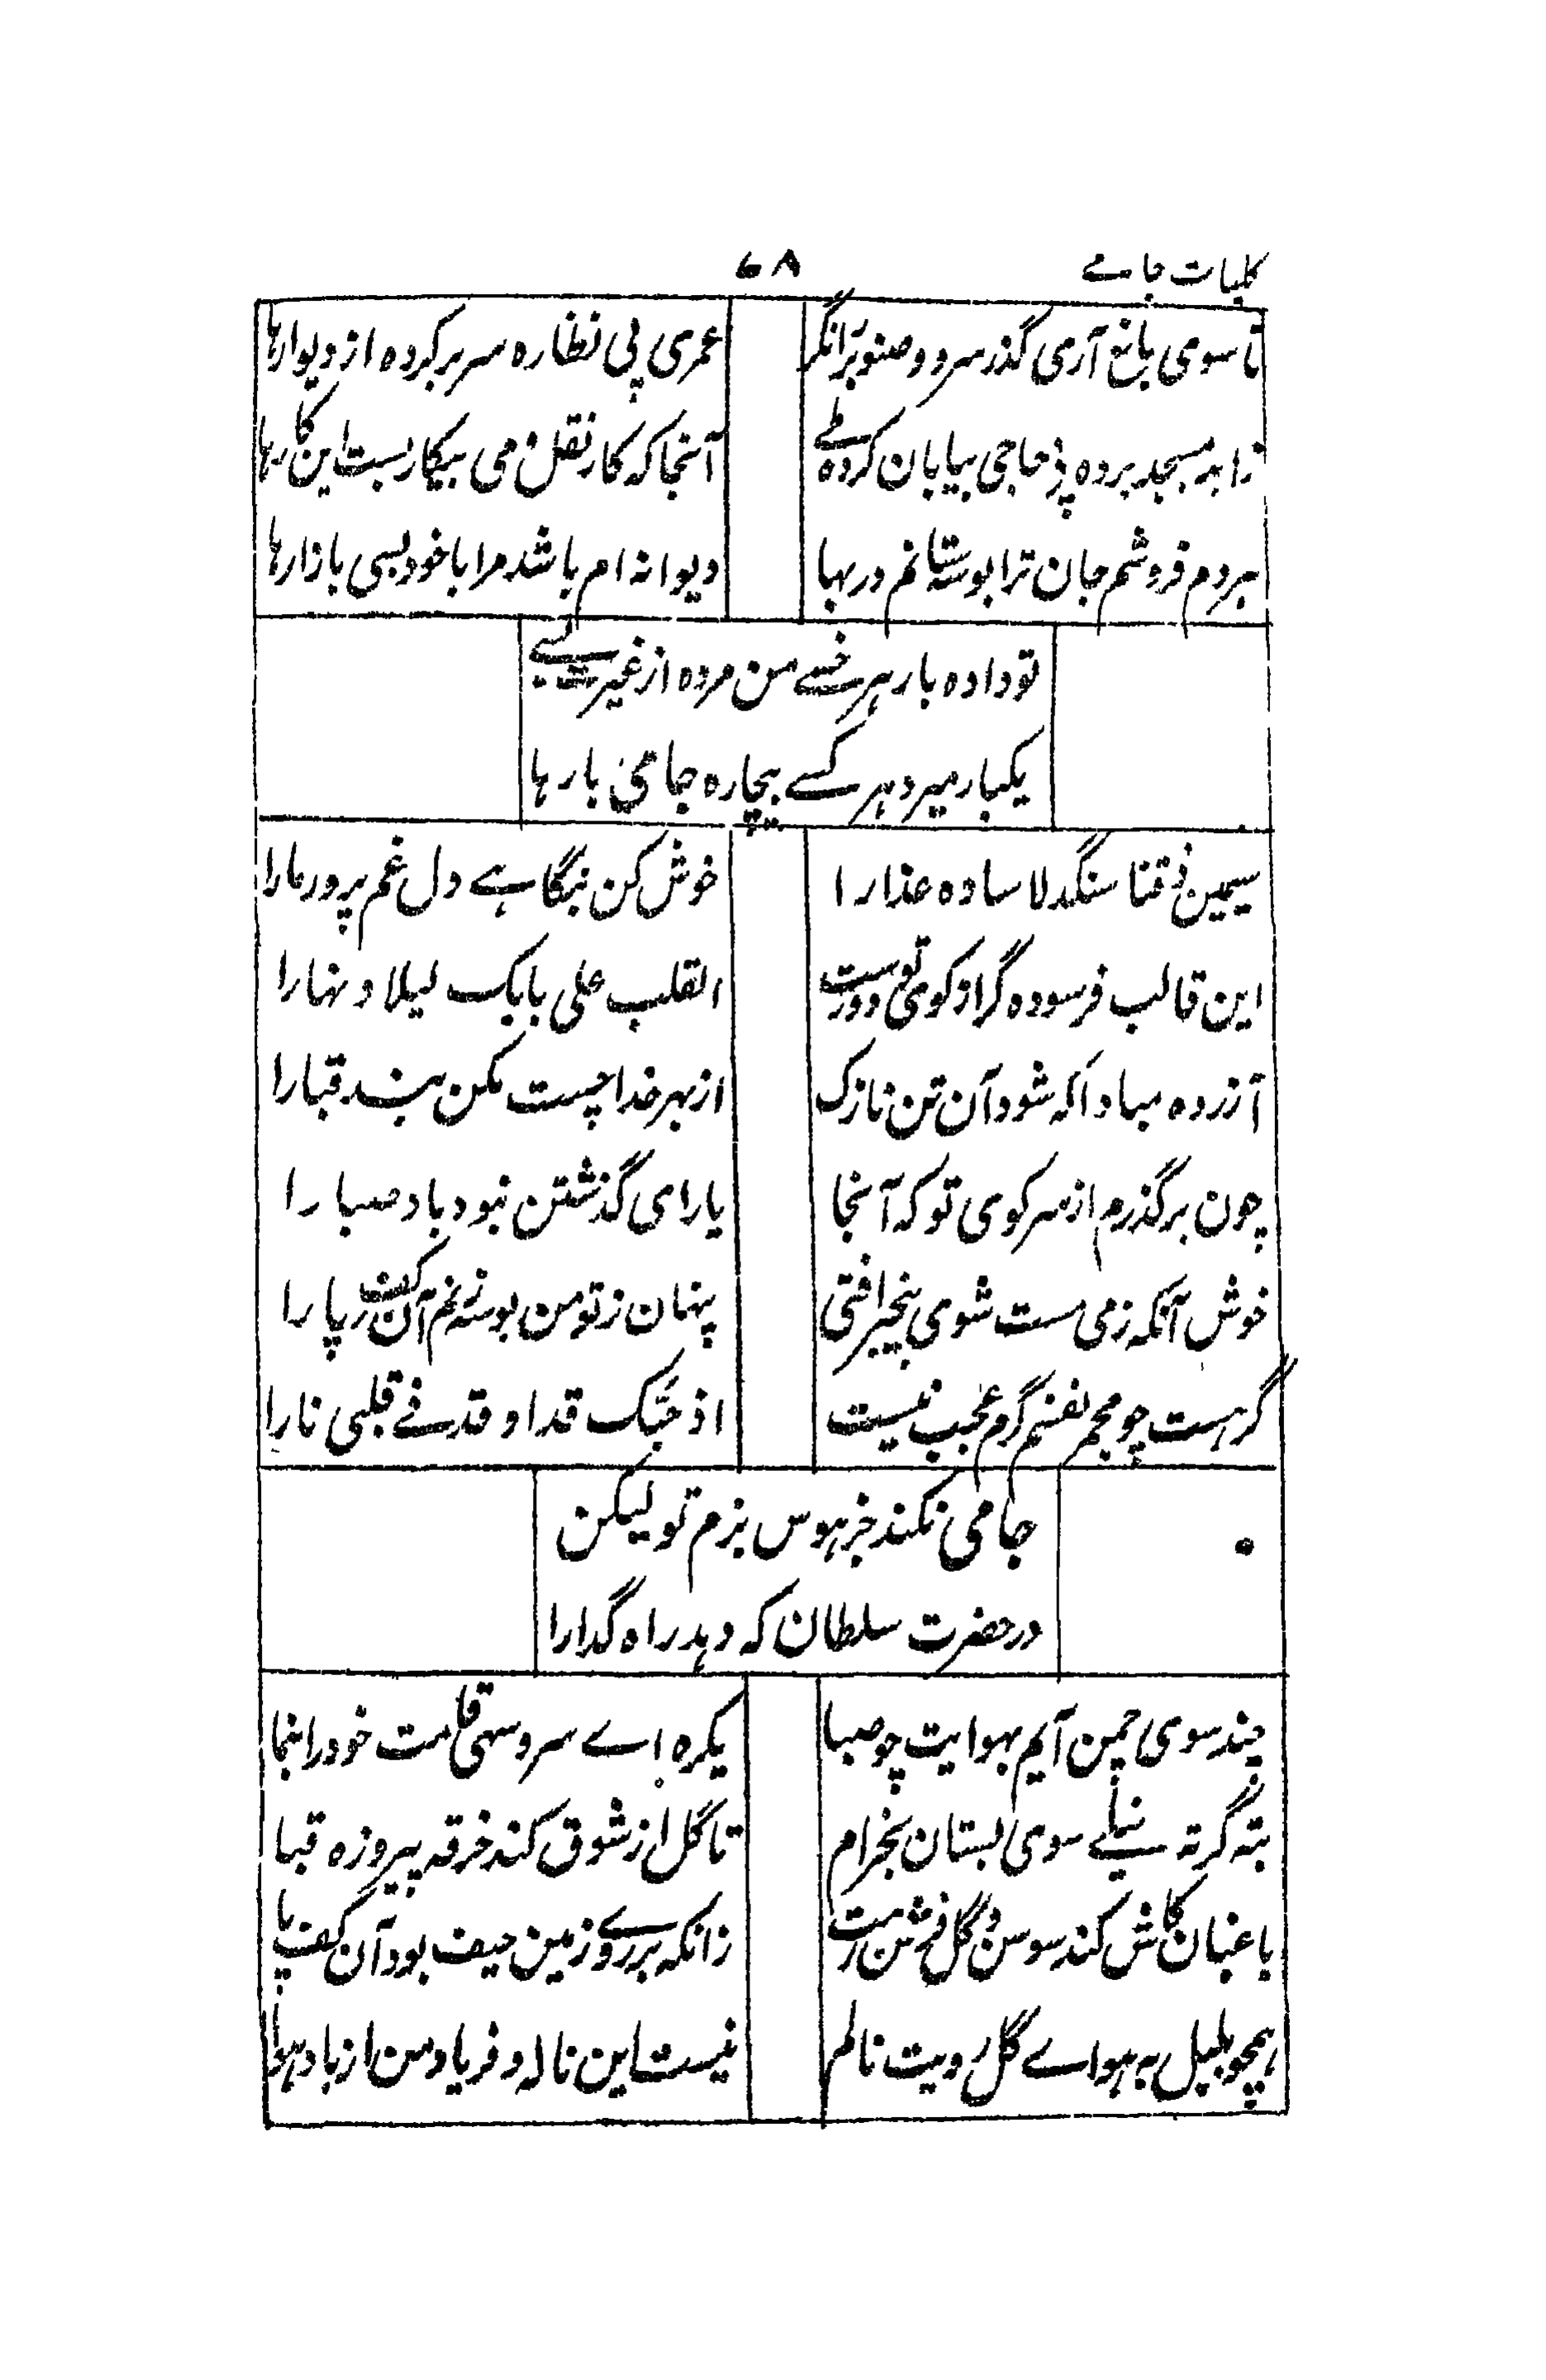 کلیات جامے
۶۸
تا سوی باغ آری گذر سرو و صنوبر را نگر
عمری پی نظاره سر برکرده از دیوارها
زاهد مسجد برده پی حاجی بیابان کرده طے
آنجا که کار نقل و می بیکاریست این کارها
هردم فروشم جان ترا بوسه ستانم در بها
دیوانه ام باشد مرا با خود بسی بازارها
تو داده بار هر خسے من مرده از غیرت بسے
یکبار میرد هر کسے بیچاره جامی بارها
سیمین ذقنا سنگدلا ساده عذارا
خوش کن بنگاهے دل غم پرور مارا
این قالب فرسوده گر از کوی تو دورست
القلب علی بابک لیلا و نهارا
آزرده مبادا که شود آن تن نازک
از بهر خدا چست مکن بند قبا را
چون برگذرم از سر کوی تو که آنجا
یارای گذشتن نبود باد صبا را
خوش آنکه ز می مست شوی بیخبر افتی
پنهان ز تو من بوسه زنم آن کف پا را
گر هست چو مجمر نفسم گرم عجب نیست
اذ حبک قدا وقد فے قلبی نارا
جامی نکند جز هوس بزم تو لیکن
در حضرت سلطان که دهد راه گدا را
چند سوی چمن آیم بهوایت چو صبا
یکره اے سرو سهی قامت خود را بنما
بته کرته نیلے سوی بستان بخرام
تا گل از شوق کند خرقه پیروزه قبا
باغبان کاش کند سوسن و گل فرش رهت
زانکه بر روے زمین حیف بود آن کف پا
همچو بلبل به هواے گل رویت نالم
نیست این ناله و فریاد من از باد هوا